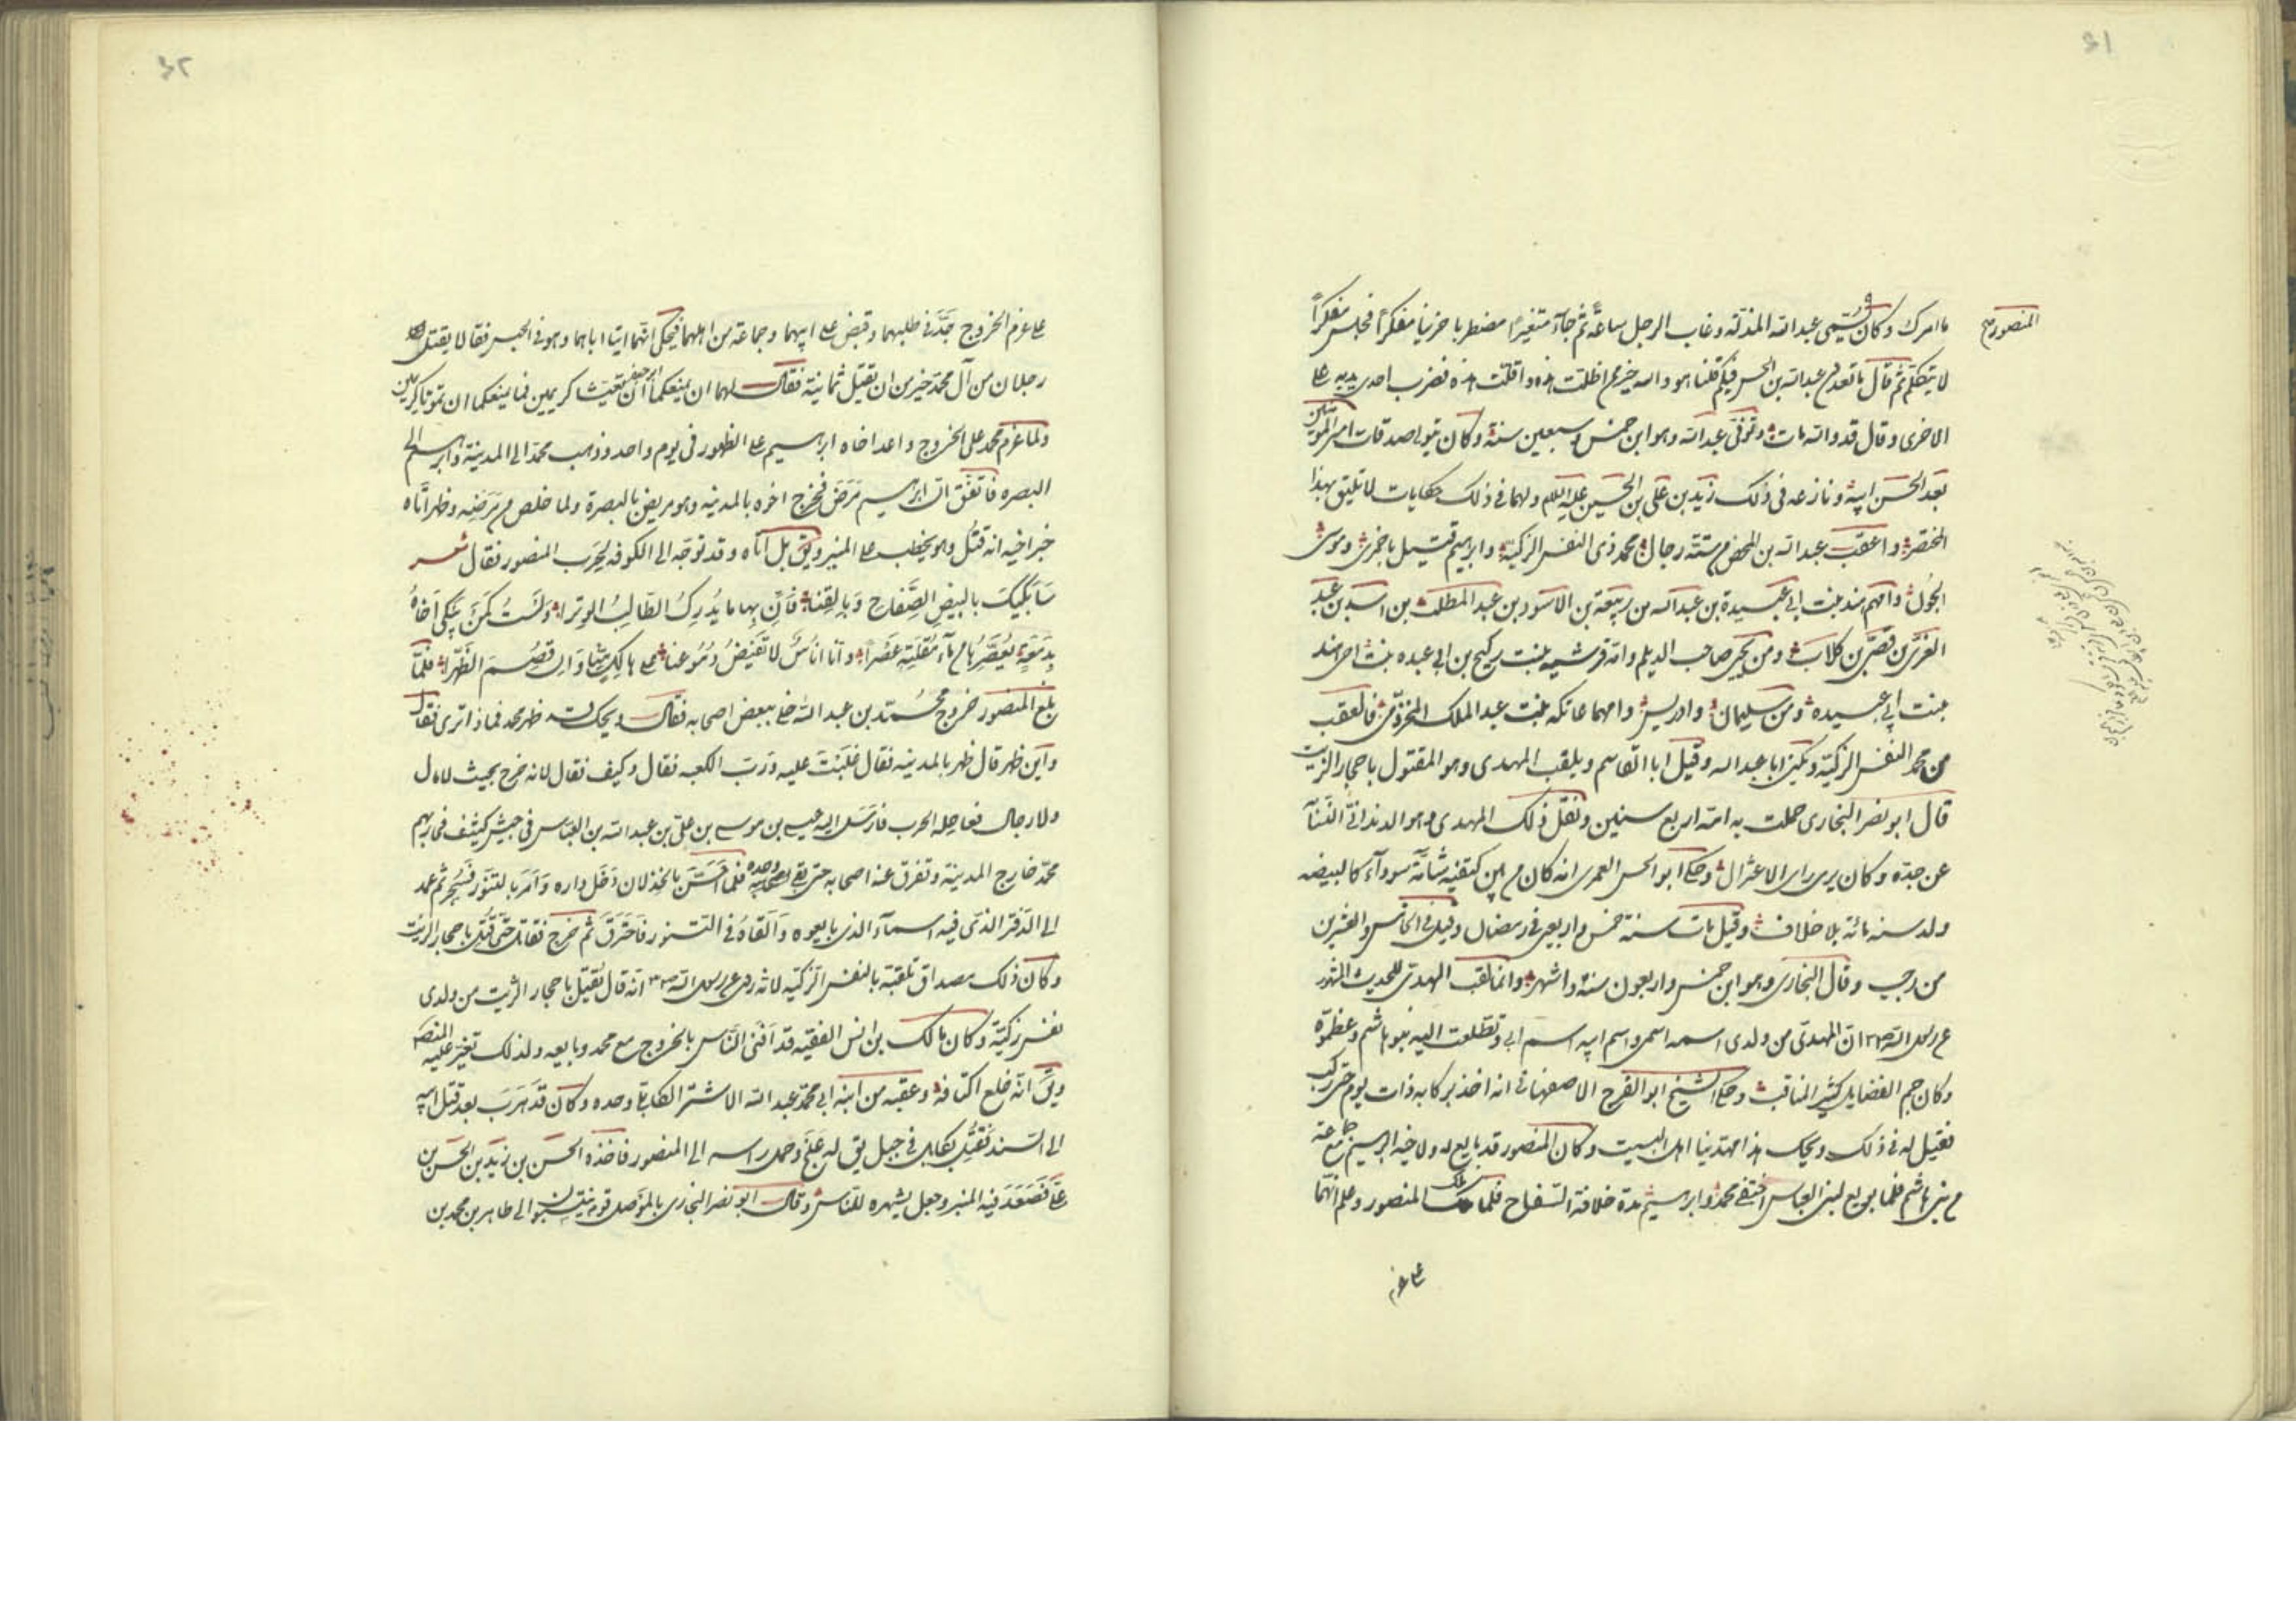 ٥١
المنصور
ما امرك وكان يسمى عبد الله المذله وغاب الرجل ساعة ثم جآء متغيرا مضطربا حزينا مفكرا فجلس مفكرا
لا يتكلم ثم قال ما تعدون عبد الله بن الحسن فيكم قلنا هو والله خير من اظلت هذه واقلت هذه فضرب احدى يديه على
الاخرى وقال قد والله مات وتوفى عبد الله وهو ابن خمس وسبعين سنة وكان يتولى صدقات امير المؤمنين
بعد الحسن ابيه ونازعه فى ذلك زيد بن على بن الحسين عليه السلام ولهما فى ذلك حكايات لا تليق بهذا
المختصر واعقب عبد الله بن المحض من ستة رجال محمد ذى النفس الزكية وابراهيم قتيل باخمرى وموسى
الجون وامهم هند بنت ابى عبيدة بن عبد الله بن ربيعة بن الاسود بن عبد المطلب بن اسد بن عبد
العزى بن قصى بن كلاب ومن يحيى صاحب الديلم وامه قرشيه بنت ركيح بن ابى عبده بنت اخى هند
بنت ابى عبيده ومن سليمان وادريس وامهما عاتكه بنت عبد الملك المخزومى فالعقب
من محمد النفس الزكية ويكنى ابا عبد الله وقيل ابا القاسم ويلقب المهدى وهو المقتول باحجار الزيت
قال ابو نصر البخارى حملت به امه اربع سنين ونقل ذلك المهدى وهو الدندانى النسابة
عن جده وكان يرى راى الاعتزال وحكى ابو الحسن العمرى انه كان من بين كتفيه شامة سودآء كالبيضه
ولد سنه مائة بلا خلاف وقيل مات سنة خمس واربعين فى رمضان وقيل فى الخامس والعشرين
من رجب وقال البخارى وهو ابن خمس واربعون سنة واشهر وانما لقب المهدى للحديث المشهور
عن رسول الله ان المهدى من ولدى اسمه اسمى واسم ابيه اسم ابى وتطلعت اليه بنو هاشم وعظموه
وكان جم الفضايل كثير المناقب وحكى الشيخ ابو الفرج الاصفهانى انه اخذ بركابه ذات يوم حتى ركب
فقيل له فى ذلك ويحك هذا مهدينا اهل البيت وكان المنصور قد بايع له ولاخيه ابراهيم مع جماعة
من بنى هاشم فلما بويع لبنى العباس اختفى محمد وابراهيم مدة خلافة السفاح فلما ملك المنصور وعلم انهما
على عزم
٥٢
على عزم الخروج جد فى طلبهما وقبض على ابيهما وجماعة من اهلهما فيحكى انهما اتيا اباهما وهو فى الحبس فقالا يقتل
رجلان من آل محمد خير من ان يقتل ثمانية فقال لهما ان منعكما ابو جعفر ان تعيشا كريمين فما يمنعكما ان تموتا كريمين
ولما عزم محمد على الخروج واعد اخاه ابراهيم على الظهور فى يوم واحد وذهب محمد الى المدينة وابراهيم الى
البصره فاتفق ان ابراهيم مرض فخرج اخوه بالمدينه وهو مريض بالبصرة ولما خلص من مرضه وظهر اتاه
خبر اخيه انه قتل وهو يخطب على المنبر ويق بل اتاه وقد توجه الى الكوفه لحرب المنصور فقال شعر
سابكيك بالبيض الصفاح وبالقنا فان بها ما يدرك الطالب الوترا ولست كمن يبكى اخاه
بدمعة يعصرها من مآء مقلته عصرا وانا اناس لا تفيض دموعنا على هالك منا وان قصم الظهرا فلما
بلغ المنصور خروج محمد بن عبد الله خلى ببعض اصحابه فقال ويحك قد ظهر محمد فماذا ترى فقال
واين ظهر قال ظهر بالمدينه فقال غلبت عليه ورب الكعبه فقال وكيف فقال لانه خرج بحيث لا مال
ولا رجال فعاجله الحرب فارسل اليه عيسى بن موسى بن على بن عبد الله بن العباس فى جيش كثيف فحاربهم
محمد خارج المدينة وتفرق عنه اصحابه حتى بقى وحده فلما احس بالخذلان دخل داره وامر بالتنور فسجر ثم عمد
الى الدفتر الذى فيه اسمآء الذى بايعوه والقاه فى التنور فاحترق ثم خرج فقاتل حتى قتل باحجار الزيت
وكان ذلك مصداق تلقبه بالنفس الزكيه لانه روى عن رسول الله انه قال يقتل باحجار الزيت من ولدى
نفس زكية وكان مالك بن انس الفقيه قد افتى الناس بالخروج مع محمد وبايعه ولذلك تغير عليه المنصور
ويق انه خلع اكتافه وعقبه من ابنه ابى محمد عبد الله الاشتر الكابلى وحده وكان قد هرب بعد قتل ابيه
الى السند فقتل بكابل فى جبل يق له علج وحمل راسه الى المنصور فاخذه الحسن بن زيد بن الحسن بن
على فصعد فيه المنبر وجعل يشهره للناس وقال ابو نصر البخارى بالموصل قوم ينتسبوا الى طاهر بن محمد بن